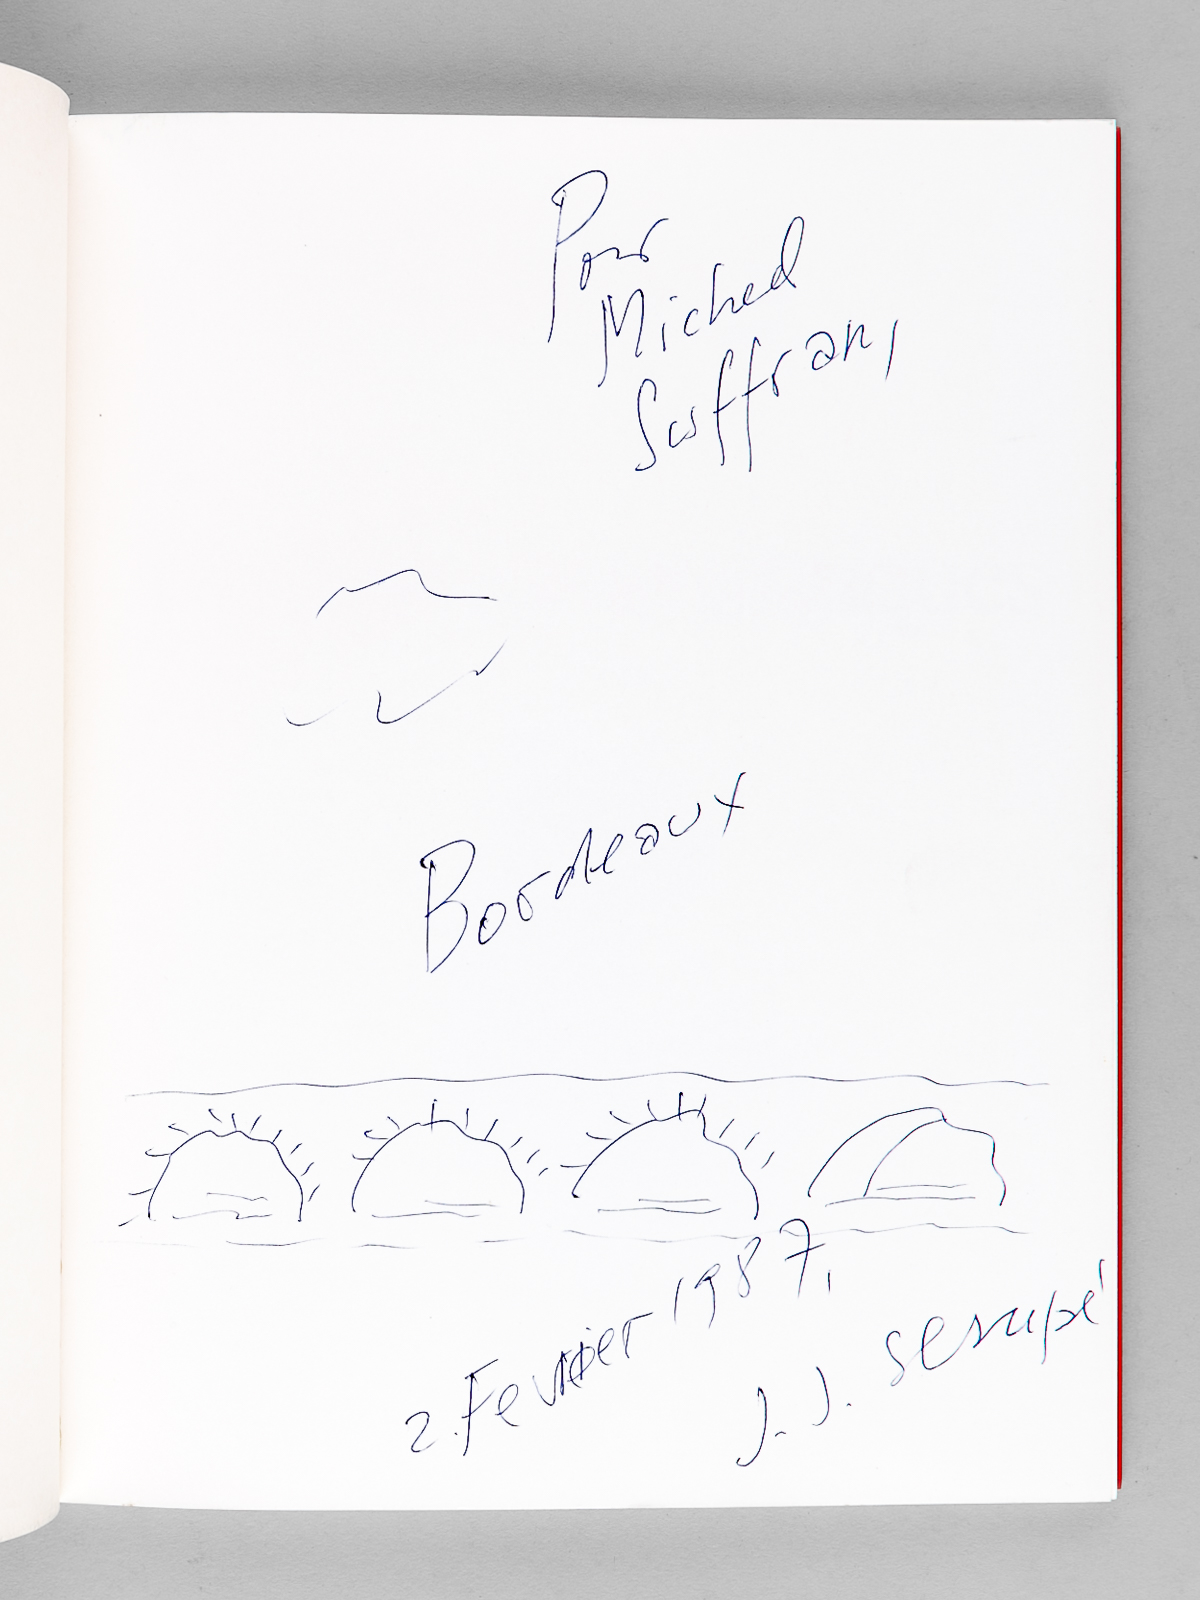 Pour
Michel
Suffran,
Bordeaux
2. Fevrier 1987,
J. J. Sempé